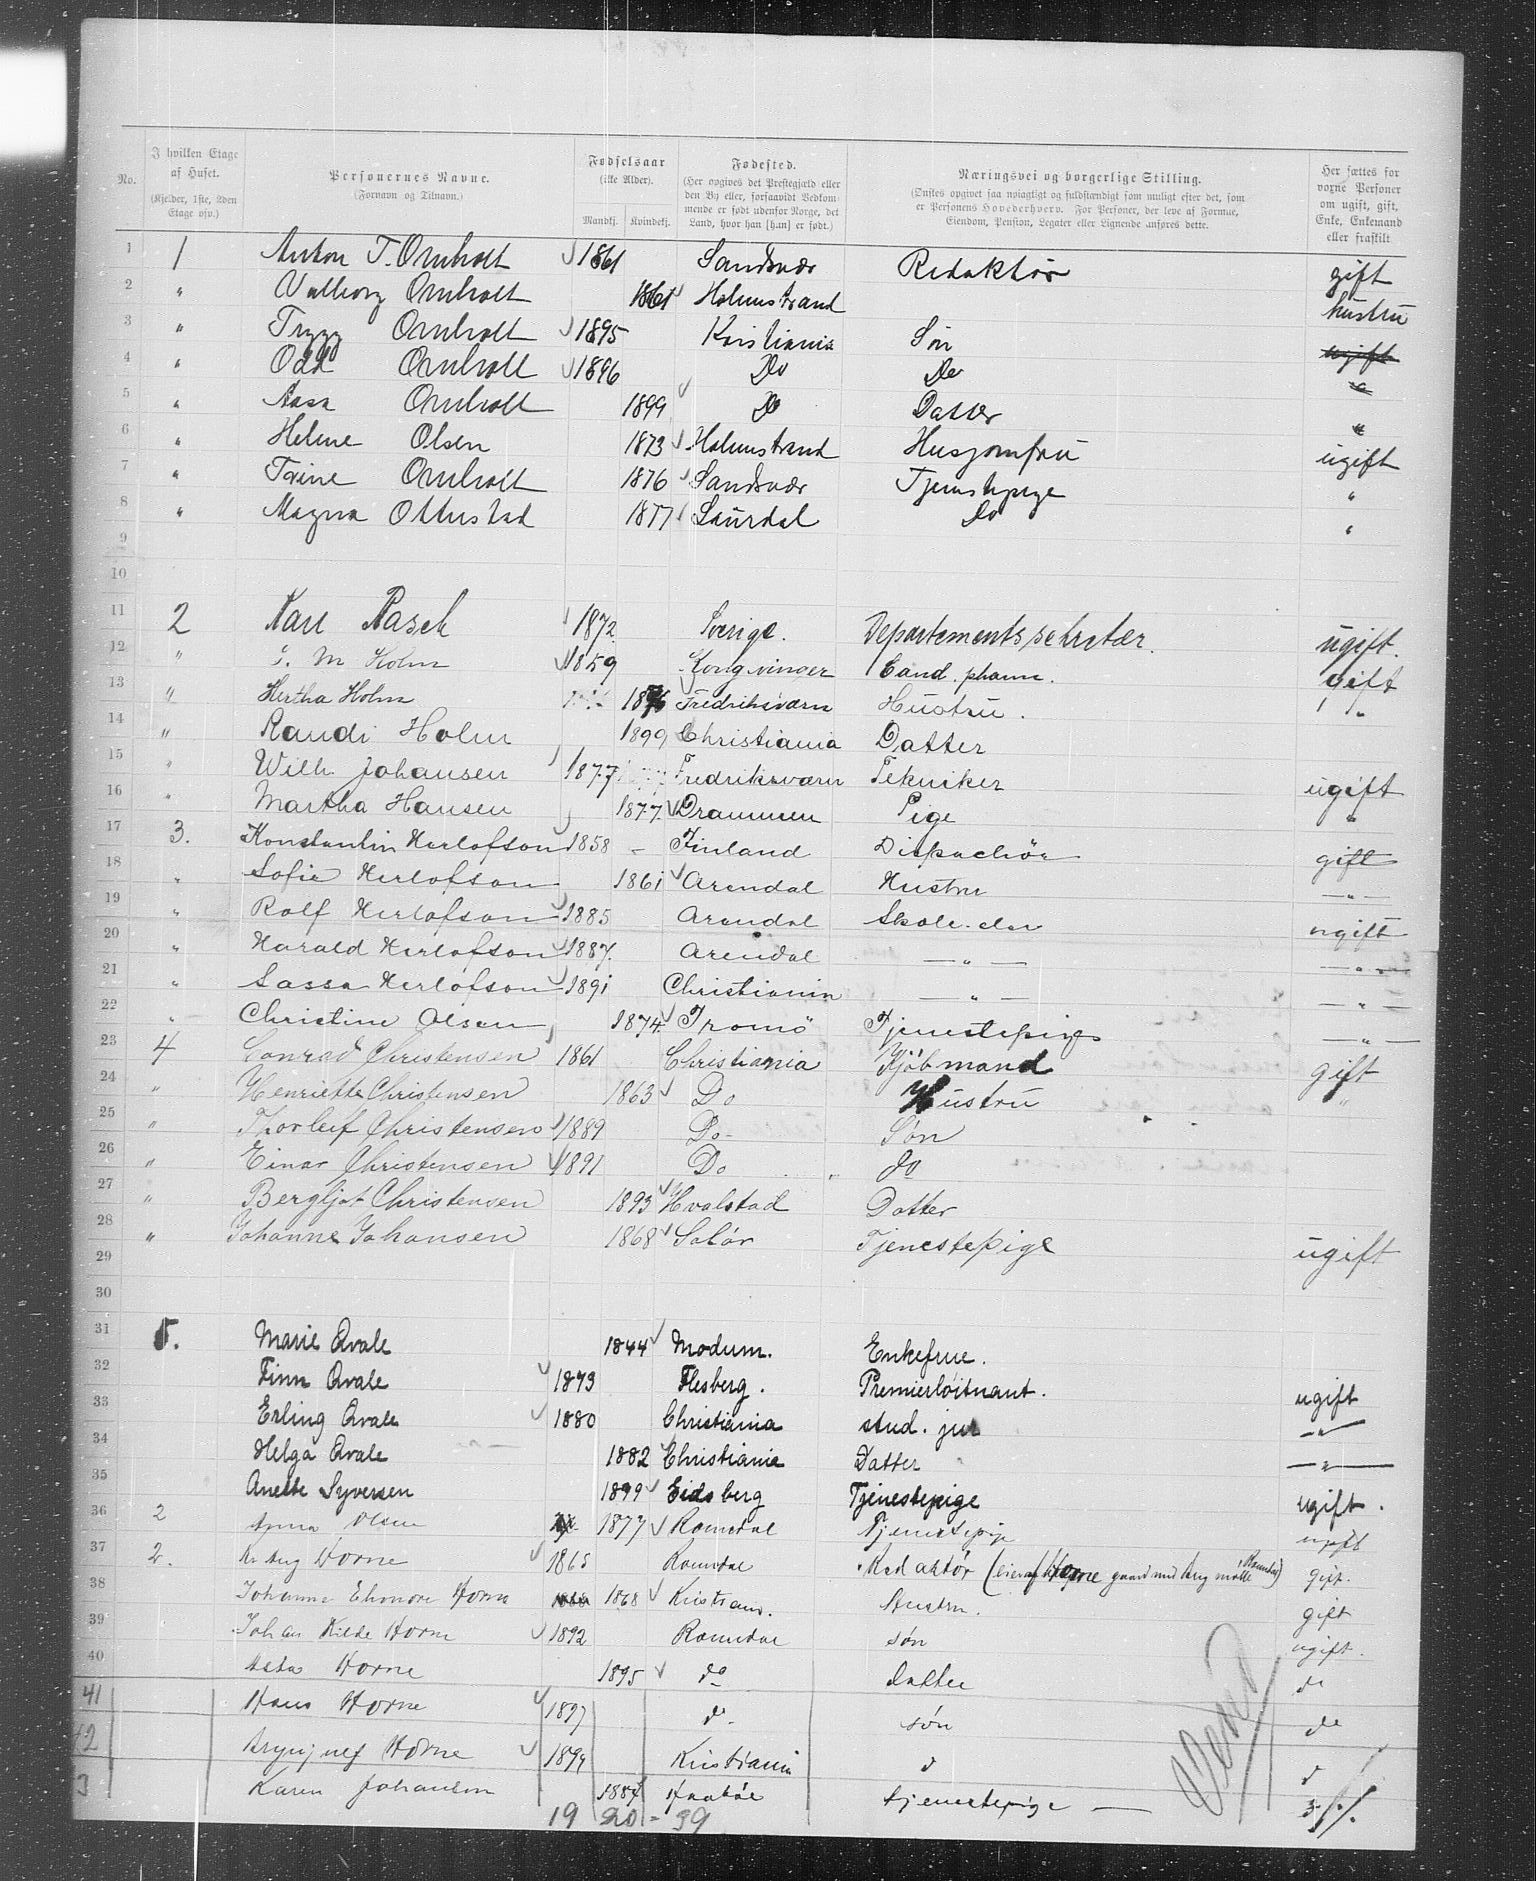 No.
I hvilken Etage af Huset.
(Kjelder, 1ste, 2den Etage osv.)
Personernes Navne.
(Fornavn og Tilnavn.)
Fødselsaar
(ikke Alder).
Mandkj.
Kvindekj.
Fødested.
(Her opgives det Prestegjæld eller den By eller, forsaavidt Vedkommende er født udenfor Norge, det Land, hvor han [hun] er født.)
Næringsvei og borgerlige Stilling.
(Ønstes opgivet saa nøiagtigt og fuldstændigt som muligt efter det, som er Personens Hovederhverv. For Personer, der leve af Formue, Eiendom, Pension, Legater eller Lignende anføres dette.
Her sættes for vorne Personer om ugift, gift, Enke, Enkemand eller frastilt
1 1 Anton T. Omholt 1861 Sandsvær Redaktør gift
2 " Valborg Omholt 1861 Holmstrand hustru
3 " Trygg Omholt 1895 Kristiania Søn ugift
4 " Odd Omholt 1896 Do Do "
5 " Aasa Omholt 1899 Do Datter "
6 " Helene Olsen 1873 Holmstrand Husjomfru ugift
7 " Trine Omholt 1876 Sandsvær Tjenstepige "
8 " Magna Ottestad 1877 Laurdal Do "
9
10
11 2 Karl Rasch 1872. Sverige. Departementssekretær. ugift.
12 " M Holm 1859 Kongsvinger Cand. pharm. gift
13 " Hertha Holm 1876 Fredriksværn Hustru. "
14 " Randi Holm 1899 Christiania Datter
15 " Wilh. Johansen 1877 Fredriksværn Tekniker ugift
16 " Martha Hansen 1877. Drammen Pige "
17 3. Konstantin Herlofson 1858 - Finland Dispachör gift
18 " Sofie Herlofson 1861 Arendal Hustru — " —
19 " Rolf Herlofson 1885 Arendal Skoleelev ugift
20 " Harald Herlofson 1887. Arendal — " — — " —
21 " Sassa Herlofson 1891 Christiania — " — — " —
22 " Christine Olsen 1874. Tromö Tjenestepige — " —
23 4 Conrad Christensen 1861 Christiania Kjöbmand gift
24 " Henriette Christensen 1863 Do Hustru "
25 " Thorleif Christensen 1889 Do- Søn
26 " Einar Christensen 1891 Do do
27 " Bergljot Christensen 1893 Hvalstad Datter
28 " Johanne Johansen 1868 Solör Tjenestepige ugift
29
30
31 5. Marie Qvale 1844 Modum. Enkefrue.
32 Finn Qvale 1873 Flesberg. Premierløitnant. ugift
33 Erling Qvale 1880 Christiania stud. jur — " —
34 Helga Qvale 1882 Christiania Datter — " —
35 Anette Syversen 1899 Eidsberg Tjenestepige ugift.
36 2 Anna Olsen 1877 Romsdal Tjenestepige ugift
37 2. Kr Aug Horne 1865 Romsdal Redaktør (eier af Horne gaard med Aug mølle Romsdal) gift.
38 Johanne Elenore Horne 1868 Kristians. Hustru. gift
39 Johan Kilde Horne 1892 Romsdal søn ugift.
40 Asta Horne 1895 do datter do
41 Hans Horne 1897 do. søn do
42 Brynjulf Horne 1899 Kristiania d d
3 Karen Johansen 1884 tjenestepige —
19 20 - 39